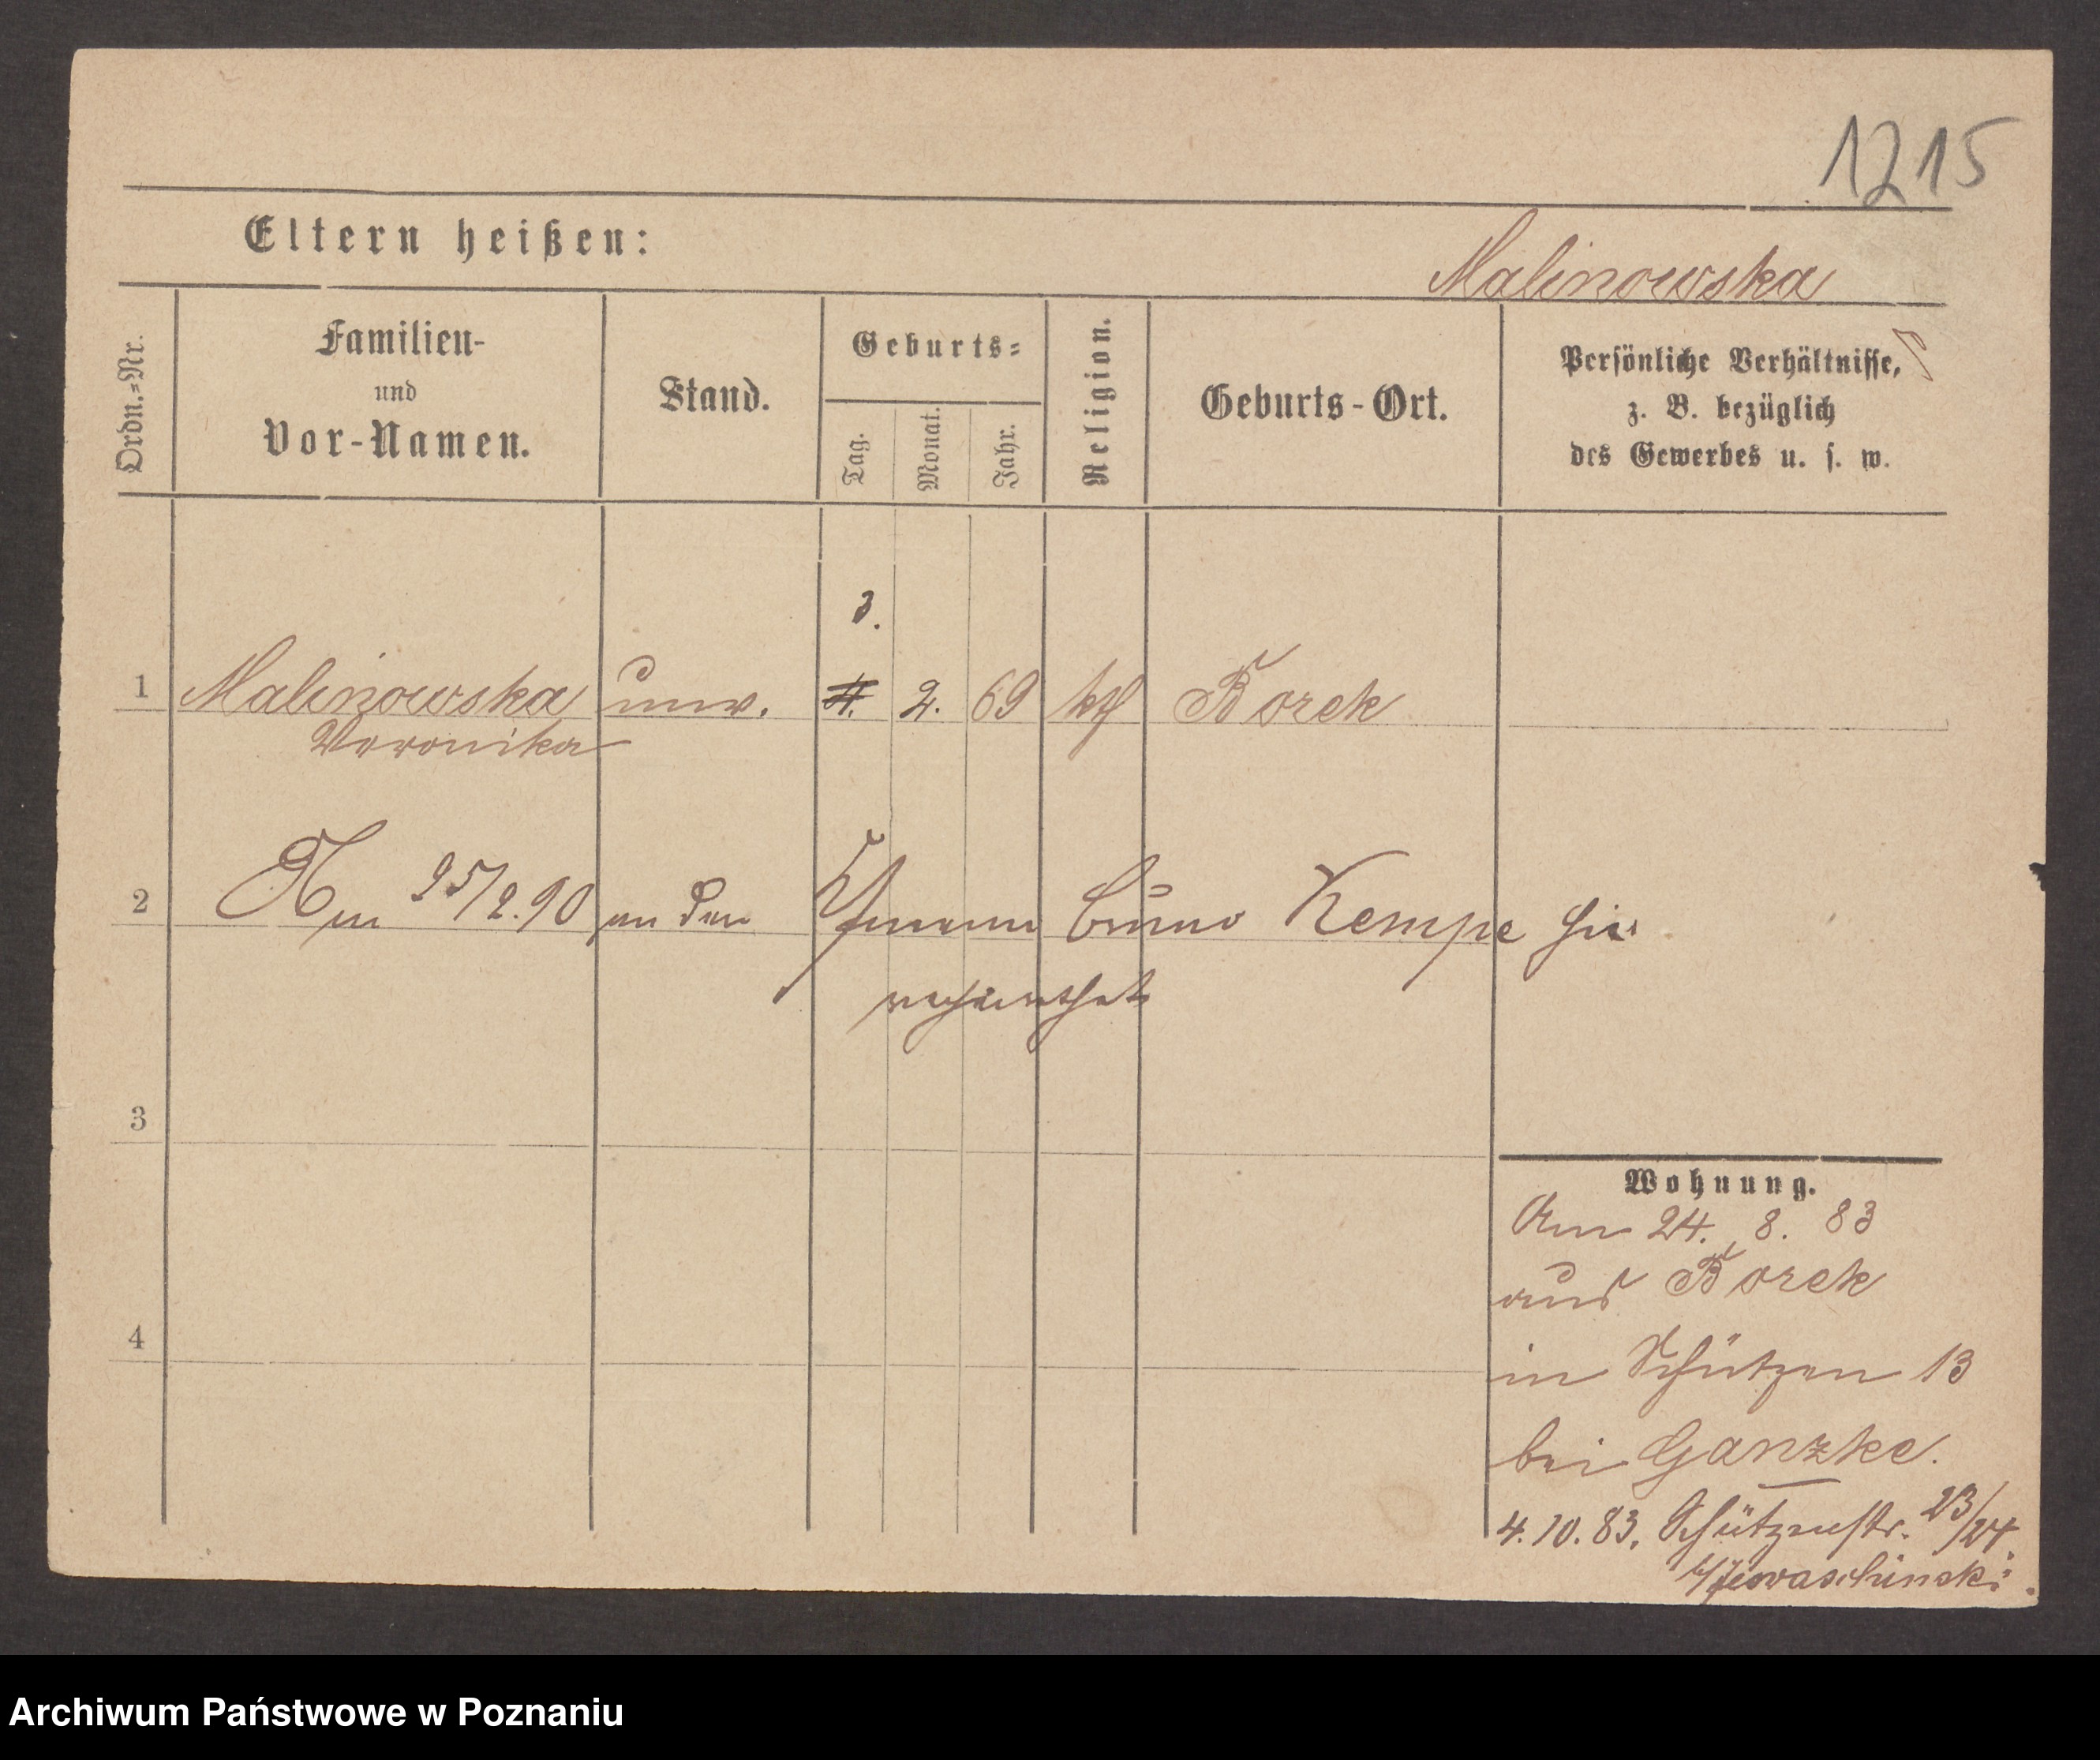 1215
Eltern heißen:
Malinowska
Ordn.=Nr.
Familien-
und
Vor-Namen.
Stand.
Geburts=
Tag.
Monat.
Jahr.
Religion.
Geburts-Ort.
Persönliche Verhältnisse,
z. B. bezüglich
des Gewerbes u. s. w.
3.
1 Malinowska unv. 4. 2. 69 kth Borek
Veronika
2 Am 25/2.90 an den Kfmann Bruno Kempe hier
verheirathet
3
4
Wohnung.
Am 24. 8. 83
aus Borek
in Schützen 13
bei Ganzke.
4.10.83. Schützenstr. 23/24.
Archiwum Państwowe w Poznaniu